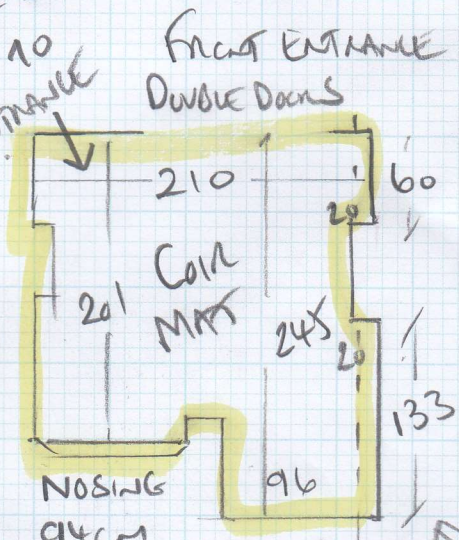 FRONT ENTRANCE
DOUBLE DOORS
210
60
20
COIR
MAT
201
245
20
133
96
NOSING
94cm